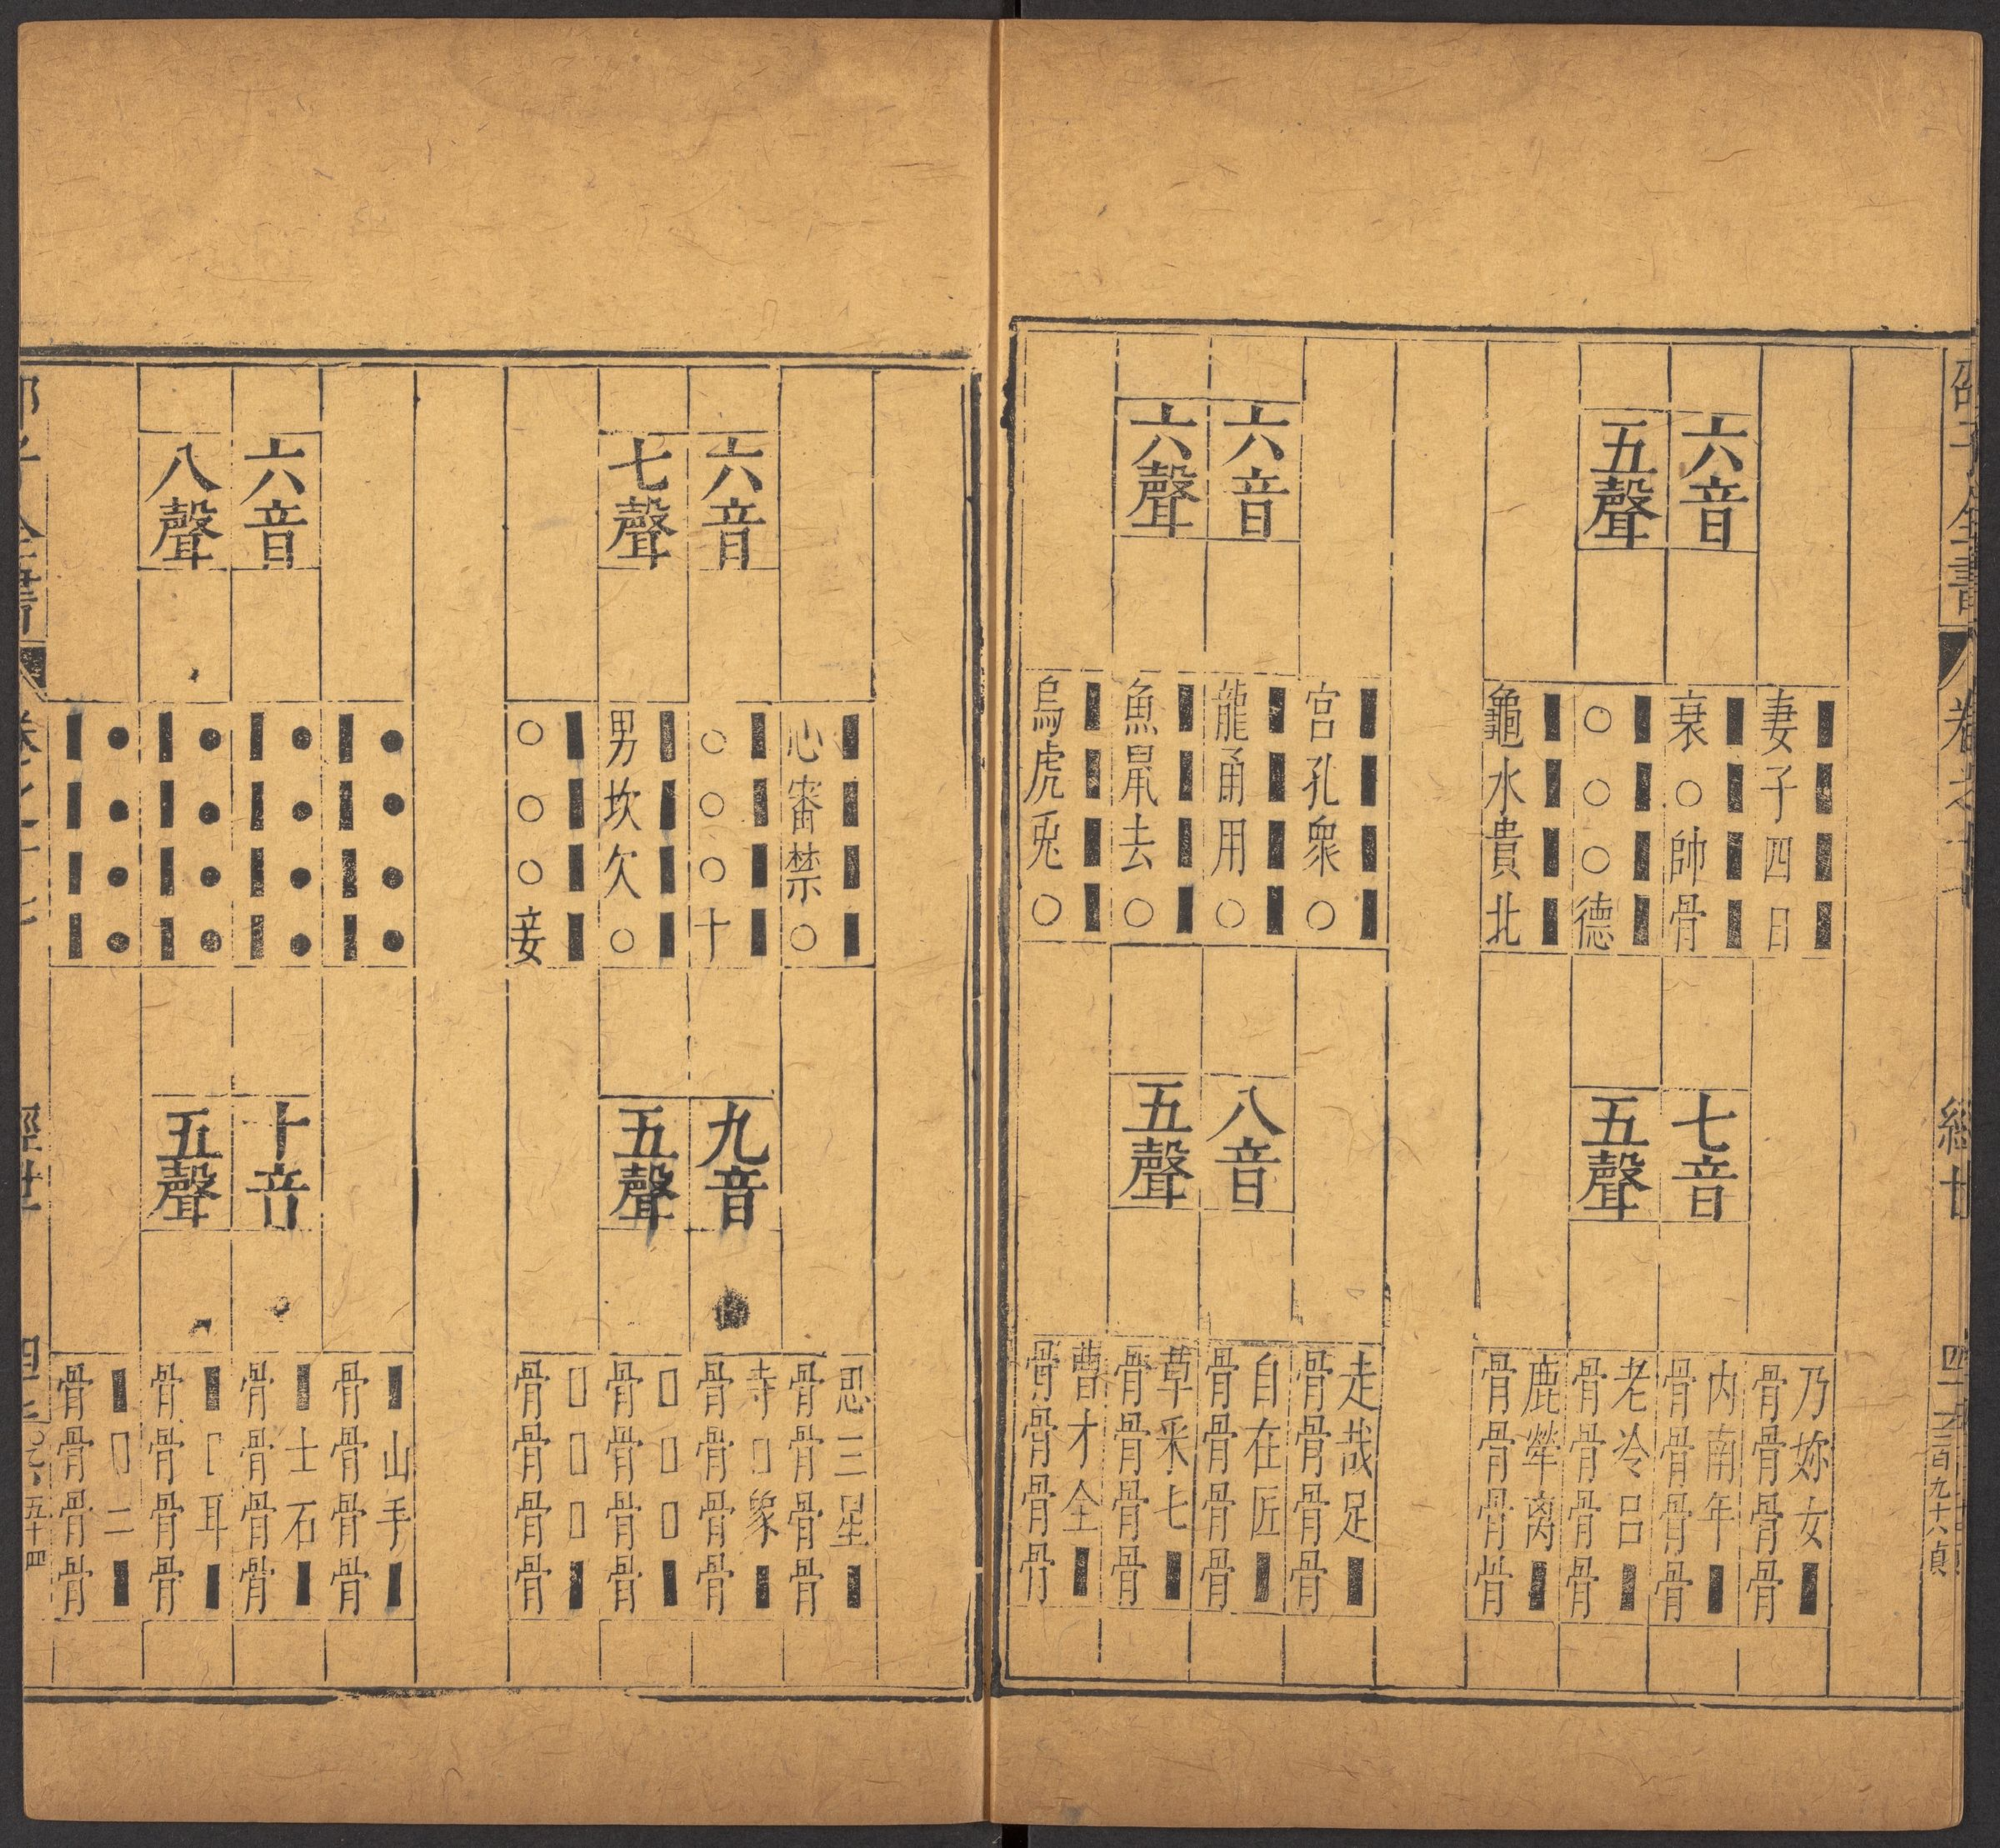 邵子全書
卷之十七
三百九十六
貞
六音
五聲
■■■■
妻子四日
■■■■
衰○帥骨
■■■■
○○○德
■■■■
龜水貴北
七音
五聲
乃妳女■
骨骨骨骨
内南年■
骨骨骨骨
老冷呂■
骨骨骨骨
鹿犖离■
骨骨骨骨
六音
六聲
■■■■
宮孔衆○
■■■■
龍甬用○
■■■■
魚鼠去○
■■■■
烏虎兎○
八音
五聲
走哉足■
骨骨骨骨
自在匠■
骨骨骨骨
草采七■
骨骨骨骨
曹才全■
骨骨骨骨
六音
七聲
■■■■
心審禁○
■■■■
○○○十
■■■■
男坎欠○
■■■■
○○○妾
九音
五聲
思三星■
骨骨骨骨
寺□象■
骨骨骨骨
□□□■
骨骨骨骨
□□□■
骨骨骨骨
六音
八聲
●●●●
■■■■
●●●●
■■■■
●●●●
■■■■
●●●●
■■■■
十音
五聲
■山手■
骨骨骨骨
■士石■
骨骨骨骨
■□耳■
骨骨骨骨
■□二■
骨骨骨骨
經世
五十四